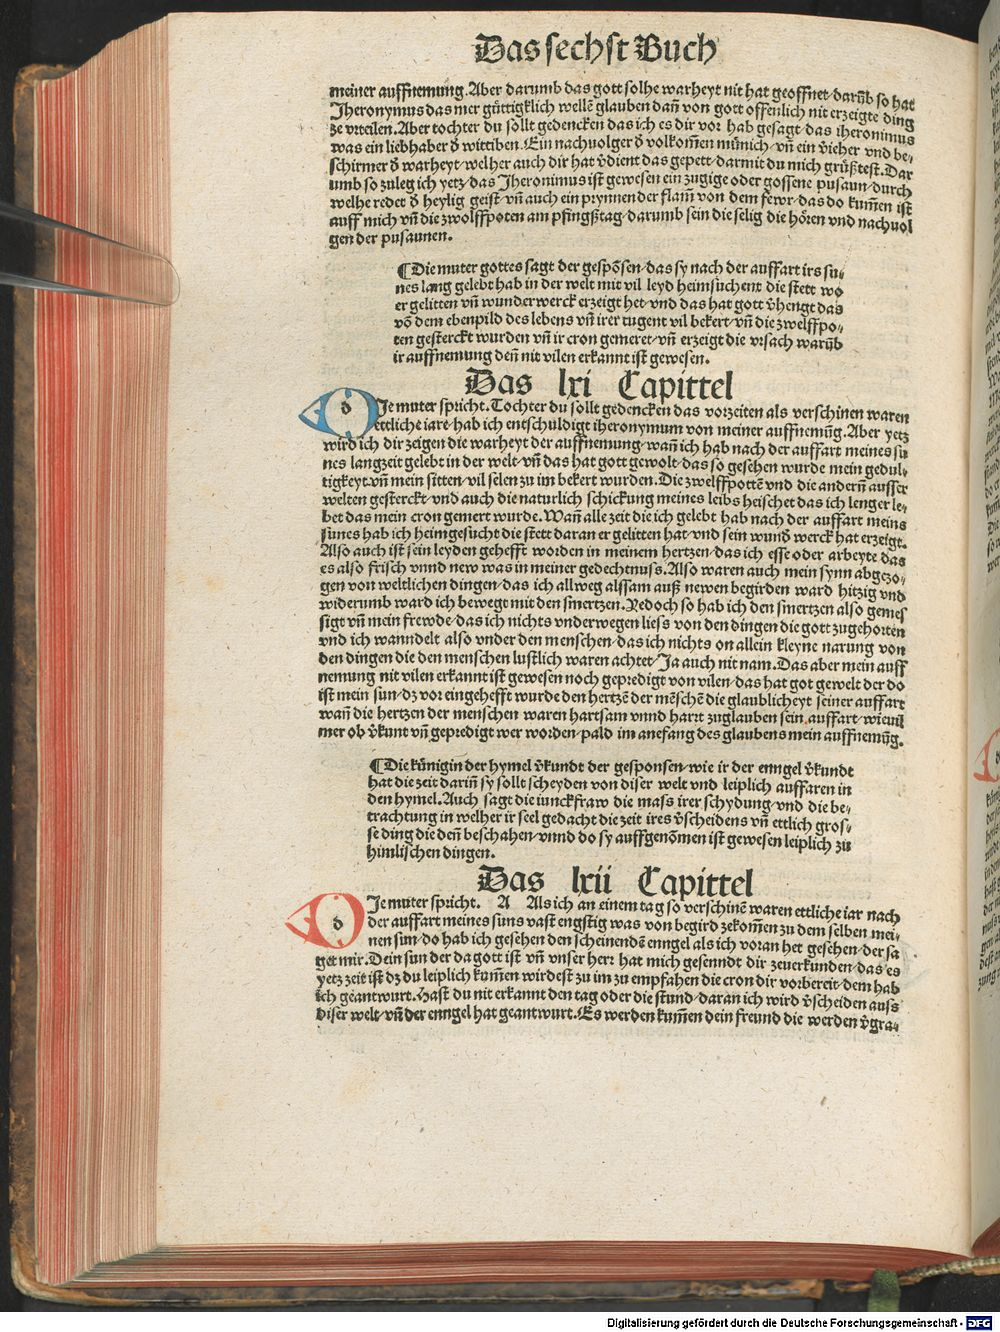 Das sechst Buch
meiner auffnemung. Aber darumb das gott solhe warheyt nit hat geoffnet/darũb so hat
Jheronymus das mer gůttigklich wellē glauben dañ von gott offenlich nit erzeigte ding
ze vrteilen. Aber tochter du sollt gedencken das ich es dir vor hab gesagt/das iheronimus
was ein liebhaber d̕ wittiben. Ein nachuolger d̕ volkom̄en münich/vñ ein v̕ieher vnd be⸗
schirmer d̕ warheyt/welher auch dir hat v̕dient das gepett/darmit du mich grüßtest. Dar
umb so zuleg ich yetz/das Jheronimus ist gewesen ein zugige oder gossene pusaun/durch
welhe redet d̕ heylig geist/vñ auch ein prynnender flam̄ von dem fewr/das do kum̄en ist
auff mich vñ die zwolffpoten am pfingßtag/darumb sein die selig die hőren vnd nachuol
gen der pusaunen.
¶ Die muter gottes sagt der gespōsen/das sy nach der auffart irs su⸗
nes lang gelebt hab in der welt mit vil leyd heimsuchent die stett wo
er gelitten vñ wunderwerck erzeigt het/vnd das hat gott v̕hengt das
vō dem ebenpild des lebens vñ irer tugent vil bekert/vñ die zwelffpo⸗
ten gesterckt wurden vñ ir cron gemeret/vñ erzeigt die vrsach warũb
ir auffnemung deñ nit vilen erkannt ist gewesen.
Das lxi Capittel
dJe muter spricht. Tochter du sollt gedencken das vorzeiten als verschinen waren
ettliche iare/hab ich entschuldigt iheronymum von meiner auffnemũg. Aber yetz
wird ich dir zeigen die warheyt der auffnemung/wañ ich hab nach der auffart meines su
nes langzeit gelebt in der welt/vñ das hat gott gewolt/das so gesehen wurde mein gedul⸗
tigkeyt/vñ mein sitten/vil selen zu im bekert wurden. Die zwelffpottē vnd die anderñ ausser
welten gesterckt/vnd auch die naturlich schickung meines leibs heischet das ich lenger le⸗
bet das mein cron gemert wurde. Wañ alle zeit die ich gelebt hab nach der auffart meins
sunes hab ich heimgesucht die stett daran er gelitten hat/vnd sein wund̕ werck hat erzeigt.
Also auch ist sein leyden gehefft worden in meinem hertzen/das ich esse oder arbeyte das
es also frisch vnnd new was in meiner gedechtnuss. Also waren auch mein synn abgezo⸗
gen von weltlichen dingen/das ich allweg alssam auß newen begirden ward hitzig vnd
widerumb ward ich bewegt mit den smertzen. Yedoch so hab ich den smertzen also gemes
sigt vñ mein frewde/das ich nichts vnderwegen liess von den dingen die gott zugehorten
vnd ich wanndelt also vnder den menschen/das ich nichts on allein kleyne narung von
den dingen die den menschen lustlich waren achtet/Ja auch nit nam. Das aber mein auff
nemung nit vilen erkannt ist gewesen noch gepredigt von vilen/das hat got gewelt der do
ist mein sun/dz vor eingehefft wurde den hertzē der mēschē die glaublicheyt seiner auffart
wañ die hertzen der menschen waren hartsam vnnd hartt zuglauben sein auffart/wieuil
mer ob v̕kunt vñ gepredigt wer worden/pald im anefang des glaubens mein auffnemũg.
¶ Die kũnigin der hymel v̕kundt der gesponsen/wie ir der enngel v̕kundt
hat die zeit dariñ sy sollt scheyden von diser welt vnd leiplich auffaren in
den hymel. Auch sagt die iunckfraw die mass irer schydung/vnd die be⸗
trachtung in welher ir seel gedacht die zeit ires v̕scheidens vñ ettlich gros⸗
se ding die deñ beschahen/vnnd do sy auffgenōmen ist gewesen leiplich zu
himlischen dingen.
Das lxii Capittel
dJe muter spricht. A Als ich an einem tag so verschinē waren ettliche iar nach
der auffart meines suns vast engstig was von begird zekom̄en zu dem selben mei⸗
nen sun/do hab ich gesehen den scheinenden enngel als ich voran het gesehen/der sa
get mir. Dein sun der da gott ist vñ vnser herr hat mich gesenndt dir zeuerkunden/das es
yetz zeit ist dz du leiplich kum̄en wirdest zu im zu empfahen die cron dir vorbereit/dem hab
ich geantwurt. Hast du nit erkannt den tag oder die stund/daran ich wird v̕scheiden auss
diser welt/vñ der enngel hat geantwurt. Es werden kum̄en dein freund die werden v̕gra⸗
Digitalisierung gefördert durch die Deutsche Forschungsgemeinschaft - DFG